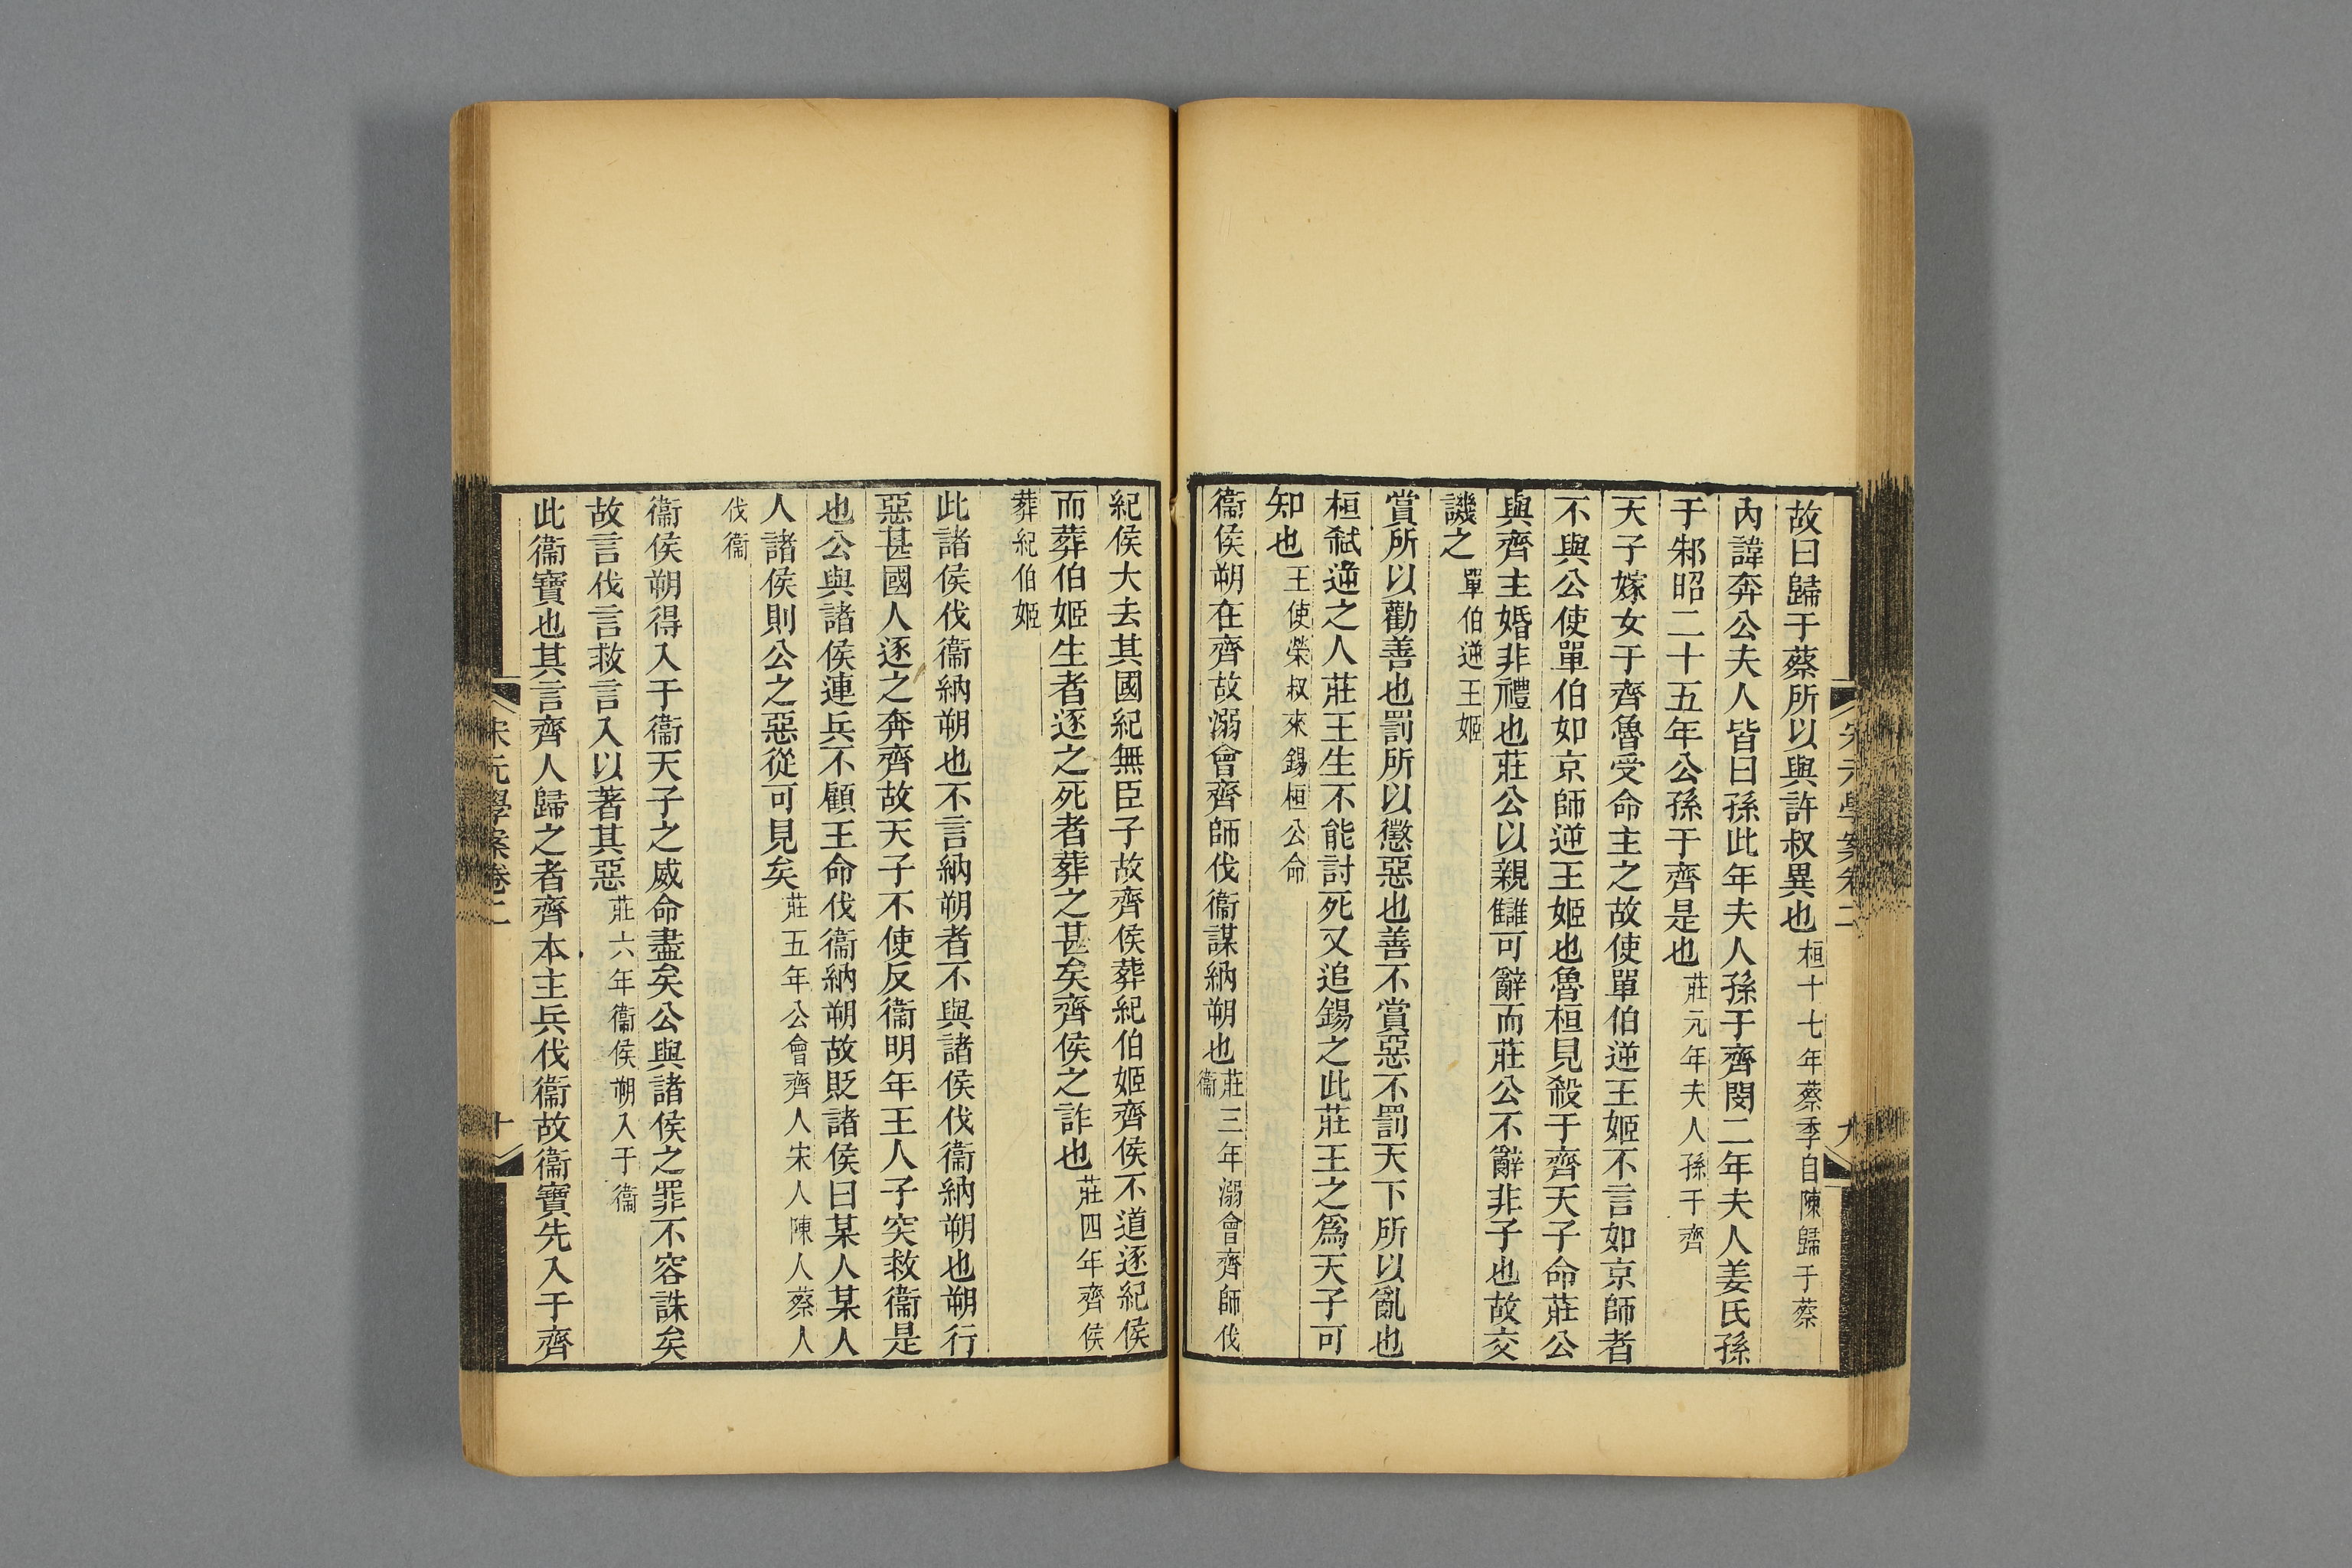 故曰歸于蔡所以與許叔異也桓十七年蔡季自陳歸于蔡
內諱奔公夫人皆曰孫此年夫人孫于齊閔二年夫人姜氏孫
于邾昭二十五年公孫于齊是也莊元年夫人孫于齊
天子嫁女于齊魯受命主之故使單伯逆王姬不言如京師者
不與公使單伯如京師逆王姬也魯桓見殺于齊天子命莊公
與齊主婚非禮也莊公以親讎可辭而莊公不辭非子也故交
譏之單伯逆王姬
賞所以勸善也罰所以懲惡也善不賞惡不罰天下所以亂也
桓弒逆之人莊王生不能討死又追錫之此莊王之爲天子可
知也王使榮叔來錫桓公命
衞侯朔在齊故溺會齊師伐衞謀納朔也莊三年溺會齊師伐衞
宋元學案卷二
九
紀侯大去其國紀無臣子故齊侯葬紀伯姬齊侯不道逐紀侯
而葬伯姬生者逐之死者葬之甚矣齊侯之詐也莊四年齊侯
葬紀伯姬
此諸侯伐衞納朔也不言納朔者不與諸侯伐衞納朔也朔行
惡甚國人逐之奔齊故天子不使反衞明年王人子突救衞是
也公與諸侯連兵不顧王命伐衞納朔故貶諸侯曰某人某人
人諸侯則公之惡從可見矣莊五年公會齊人宋人陳人蔡人
伐衞
衞侯朔得入于衞天子之威命盡矣公與諸侯之罪不容誅矣
故言伐言救言入以著其惡莊六年衞侯朔入于衞
此衞寶也其言齊人歸之者齊本主兵伐衞故衞寶先入于齊
宋元學案卷二
十